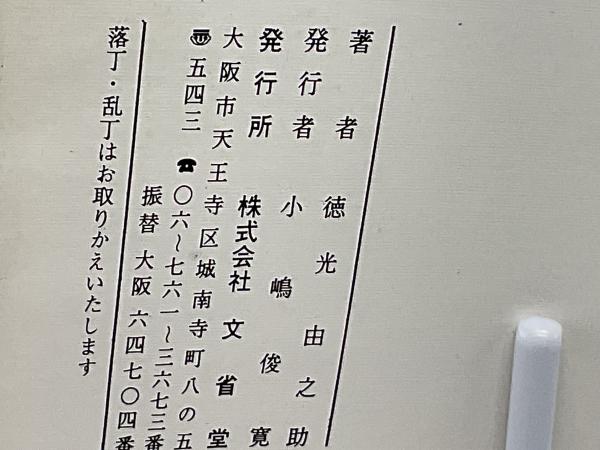 著者 徳光由之助
発行者 小嶋俊寛
発行所 株式会社 文省堂
大阪市天王寺区城南寺町八の五
〠五四三 ☎〇六〜七六一〜三六七三番
振替 大阪 六四七〇四番
落丁・乱丁はお取りかえいたします